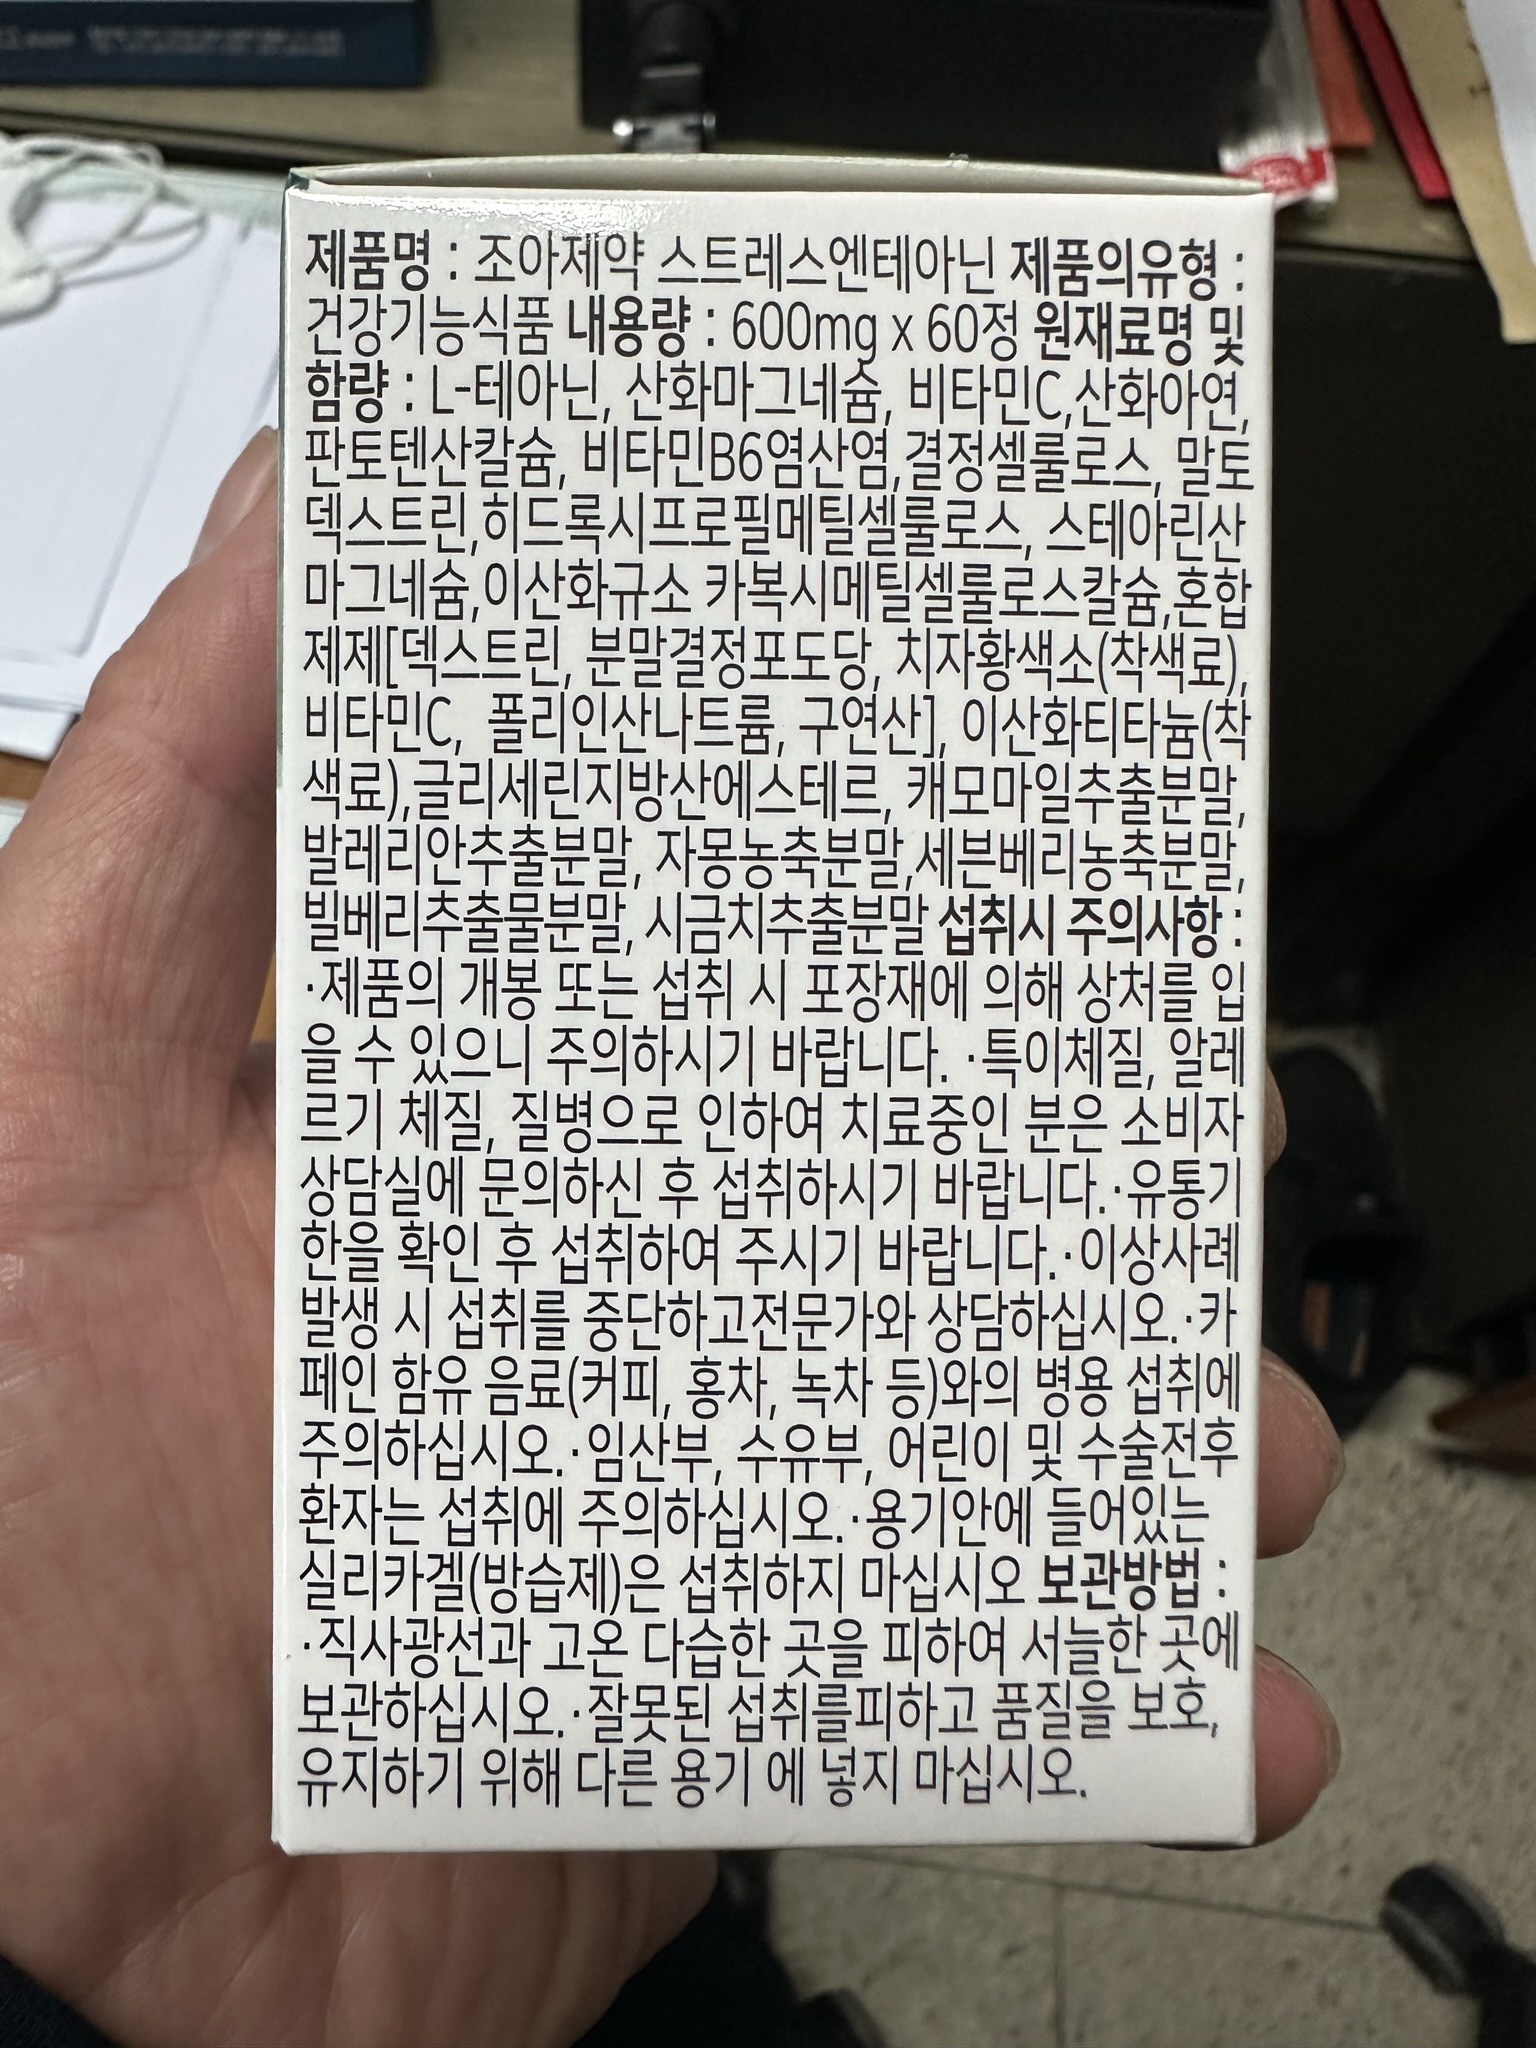 제품명 : 조아제약 스트레스엔테아닌 제품의유형 :
건강기능식품 내용량 : 600mg x 60정 원재료명 및
함량 : L-테아닌, 산화마그네슘, 비타민C,산화아연,
판토텐산칼슘, 비타민B6염산염,결정셀룰로스, 말토
덱스트린,히드록시프로필메틸셀룰로스, 스테아린산
마그네슘,이산화규소 카복시메틸셀룰로스칼슘,혼합
제제[덱스트린, 분말결정포도당, 치자황색소(착색료),
비타민C, 폴리인산나트륨, 구연산], 이산화티타늄(착
색료),글리세린지방산에스테르, 캐모마일추출분말,
발레리안추출분말, 자몽농축분말,세븐베리농축분말,
빌베리추출물분말, 시금치추출분말 섭취시 주의사항 :
·제품의 개봉 또는 섭취 시 포장재에 의해 상처를 입
을 수 있으니 주의하시기 바랍니다. ·특이체질, 알레
르기 체질, 질병으로 인하여 치료중인 분은 소비자
상담실에 문의하신 후 섭취하시기 바랍니다.·유통기
한을 확인 후 섭취하여 주시기 바랍니다.·이상사례
발생 시 섭취를 중단하고전문가와 상담하십시오.·카
페인 함유 음료(커피, 홍차, 녹차 등)와의 병용 섭취에
주의하십시오.·임산부, 수유부, 어린이 및 수술전후
환자는 섭취에 주의하십시오.·용기안에 들어있는
실리카겔(방습제)은 섭취하지 마십시오 보관방법 :
·직사광선과 고온 다습한 곳을 피하여 서늘한 곳에
보관하십시오.·잘못된 섭취를피하고 품질을 보호,
유지하기 위해 다른 용기 에 넣지 마십시오.